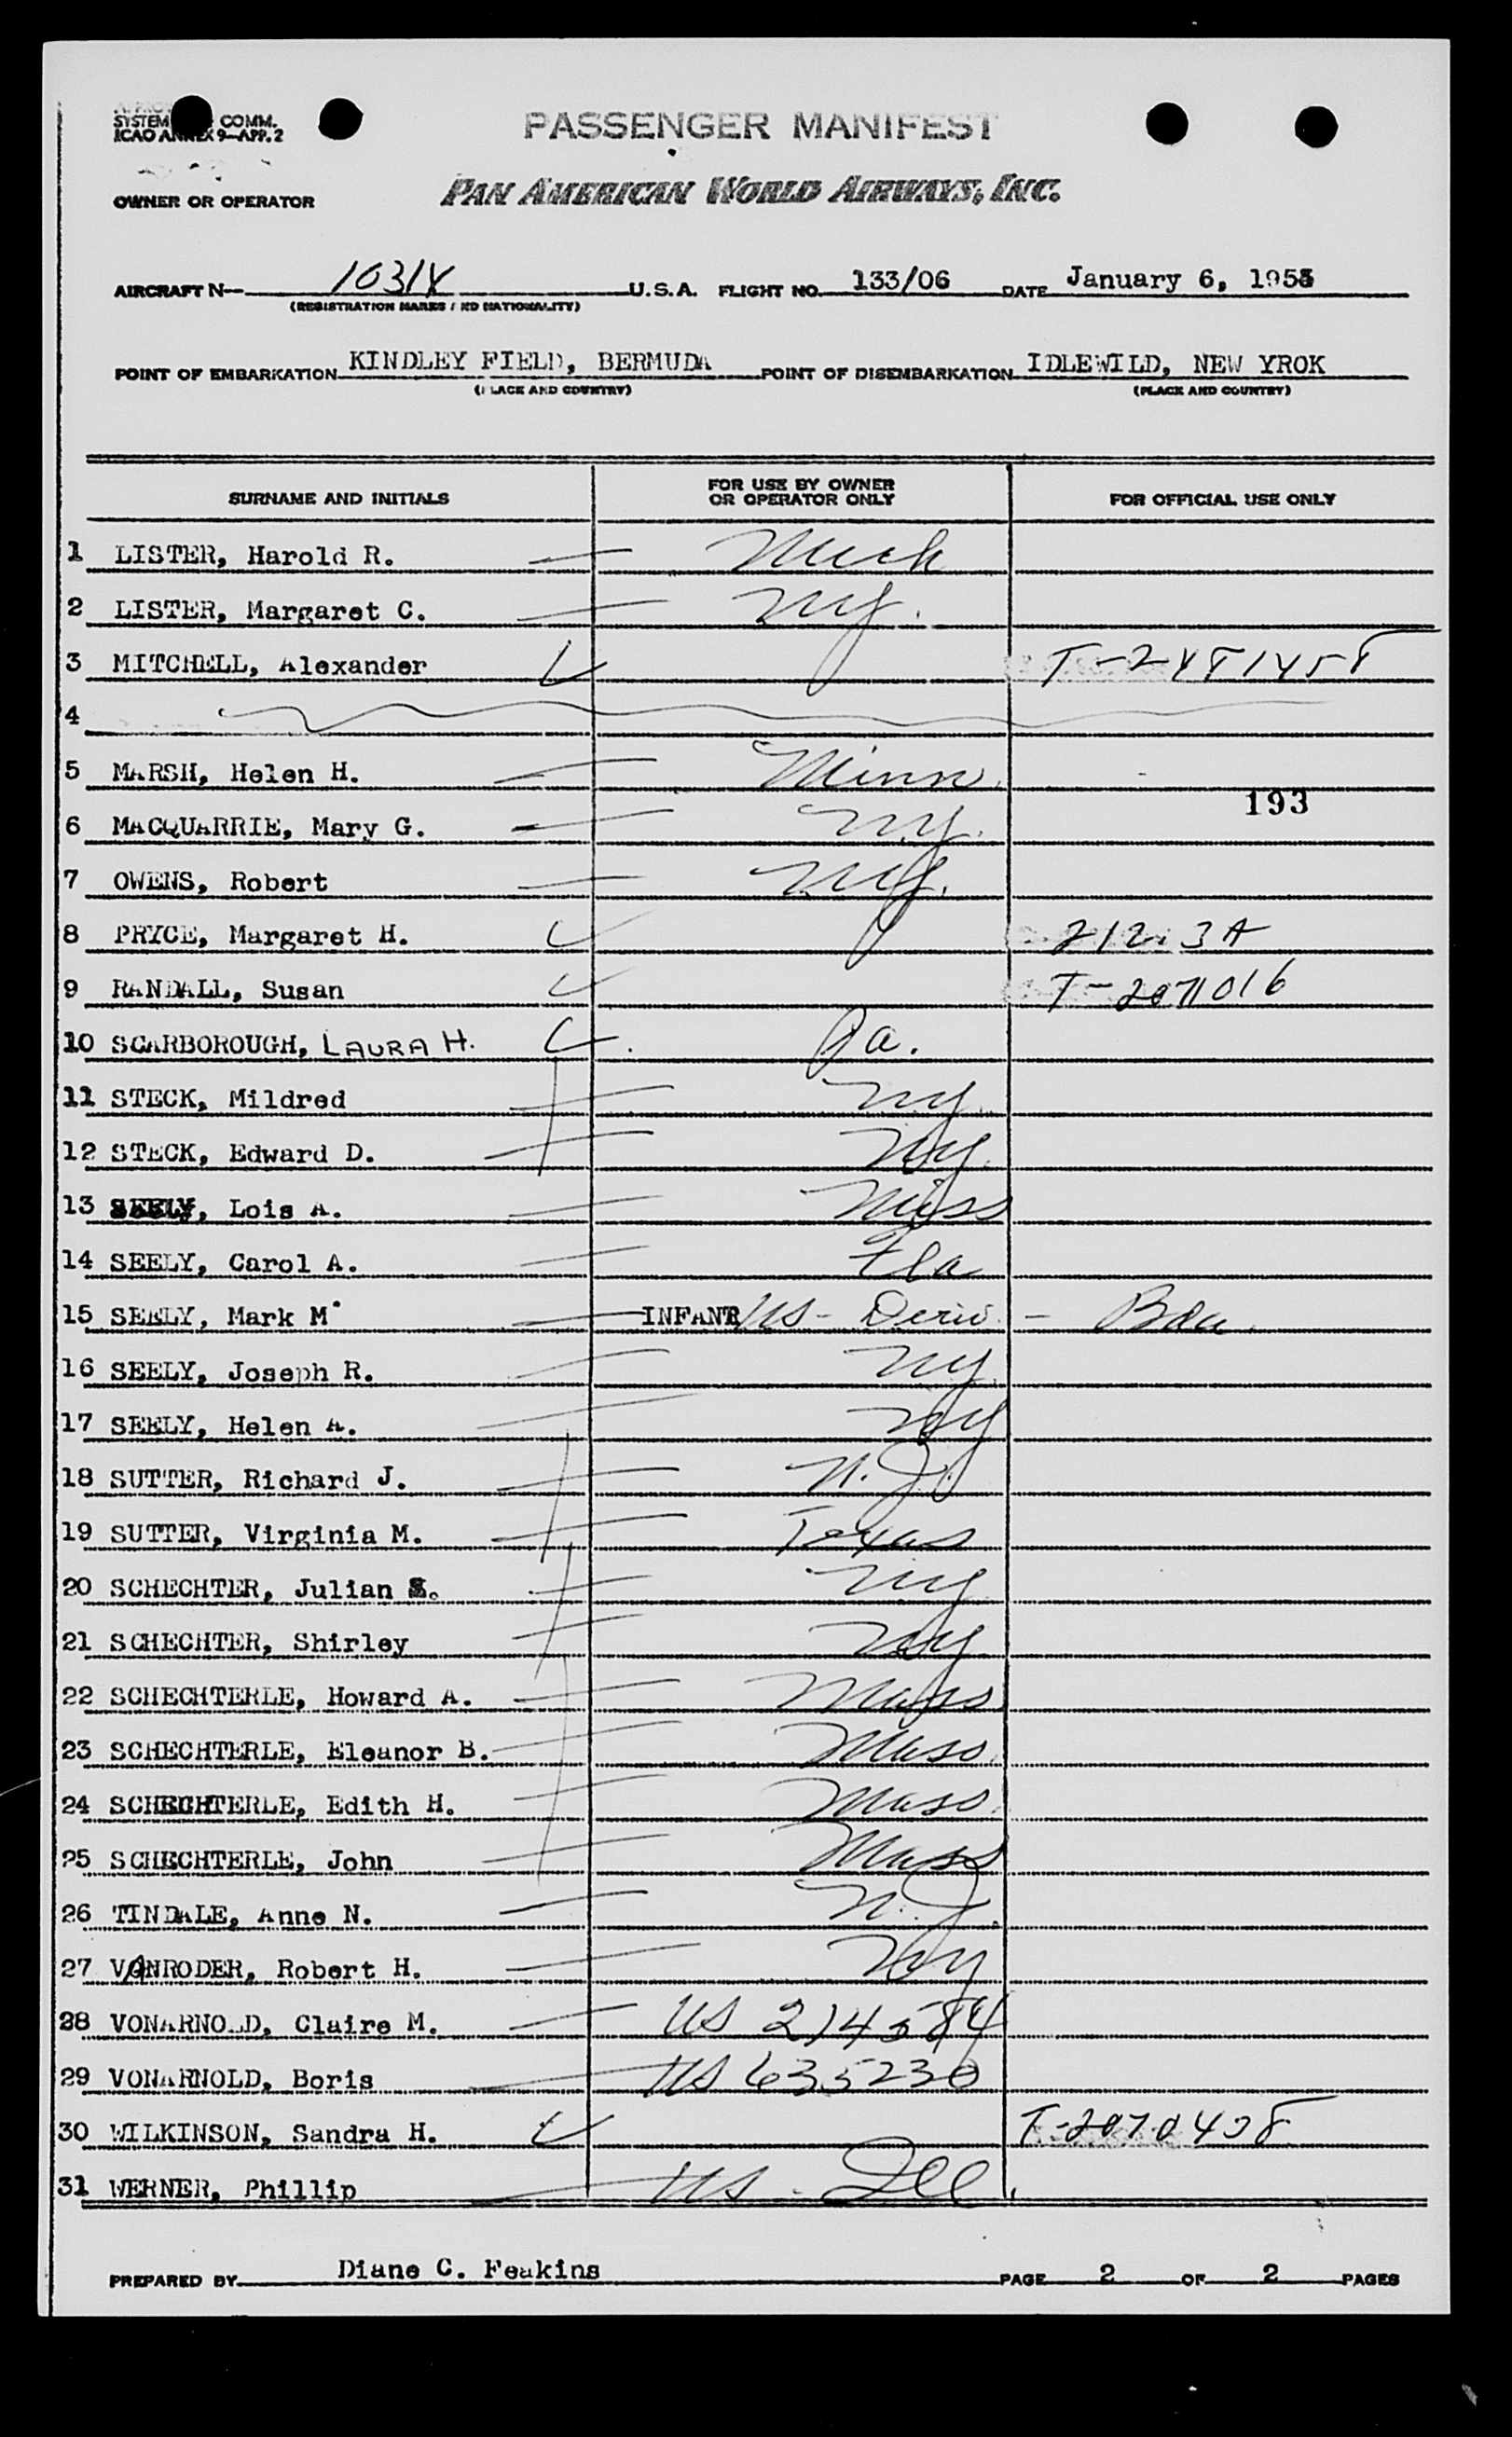 SYSTEM COMM.
ICAO ANNEX 9—APP. 2
PASSENGER MANIFEST
OWNER OR OPERATOR PAN AMERICAN WORLD AIRWAYS, INC.
AIRCRAFT N— U.S.A. FLIGHT NO. 133/06 DATE January 6, 1955
(REGISTRATION MARKS AND NATIONALITY)
POINT OF EMBARKATION KINDLEY FIELD, BERMUDA POINT OF DISEMBARKATION IDLEWILD, NEW YROK
(PLACE AND COUNTRY) (PLACE AND COUNTRY)
SURNAME AND INITIALS FOR USE BY OWNER OR OPERATOR ONLY FOR OFFICIAL USE ONLY
1 LISTER, Harold R. Mich
2 LISTER, Margaret C. NY.
3 MITCHELL, Alexander T-2481458
4
5 MARSH, Helen H. Minn.
193
6 MACQUARRIE, Mary G. NY.
7 OWENS, Robert NY.
8 PRYCE, Margaret H. 212.3A
9 RANDALL, Susan T-2071016
10 SCARBOROUGH, LAURA H. Pa.
11 STECK, Mildred NY.
12 STECK, Edward D. NY.
13 SEELY, Lois A. Miss
14 SEELY, Carol A. Fla
15 SEELY, Mark M. INFANT US - Deriv. - Bda.
16 SEELY, Joseph R. NY.
17 SEELY, Helen A. NY
18 SUTTER, Richard J. N.J.
19 SUTTER, Virginia M. Texas
20 SCHECHTER, Julian S. NY
21 SCHECHTER, Shirley NY
22 SCHECHTERLE, Howard A. Mass
23 SCHECHTERLE, Eleanor B. Mass.
24 SCHECHTERLE, Edith H. Mass.
25 SCHECHTERLE, John Mass
26 TINDALE, Anne N. N.J.
27 VANRODER, Robert H. NY
28 VONARNOLD, Claire M. US 214584
29 VONARNOLD, Boris US 635230
30 WILKINSON, Sandra H. T-2070408
31 WERNER, Phillip US - Ill.
PREPARED BY Diane C. Feakins PAGE 2 OF 2 PAGES